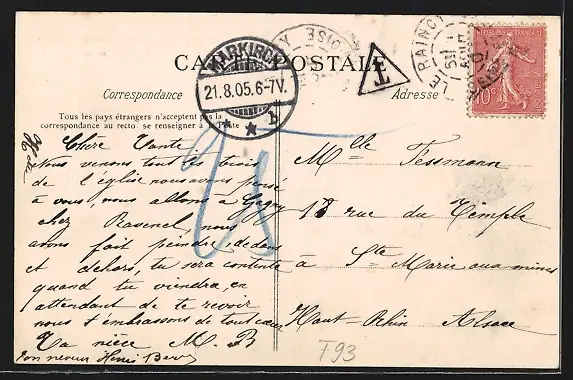 CARTE POSTALE
MARKIRCH
21.8.05.6-7V.
b
T
LE RAINCY
REPUBLIQUE FRANÇAISE
10 c
Correspondance
Adresse
Tous les pays étrangers n'acceptent pas la
correspondance au recto, se renseigner à la Poste
Chère Tante
Nous venons tout les trois
de l'église nous avons pensé
à vous, nous allons à Gagny
chez nous
avons fait peindre dedans
et dehors, tu sera contente
quand tu viendra, en
attendant de te revoir
nous t'embrassons de tout cœur
Ta nièce M. B
ton neveu Henri
Mlle Tessmann
18 rue du Temple
à Ste Marie aux mines
Haut-Rhin Alsace
F93